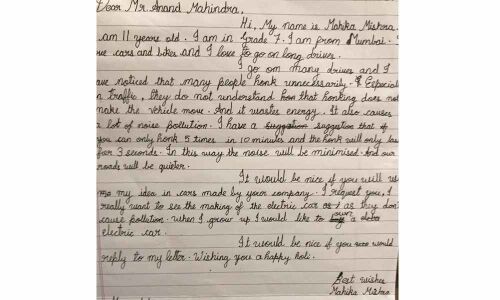 Dear Mr. Anand Mahindra,
Hi, My name is Mahika Mishra. I
am 11 years old. I am in Grade 7. I am from Mumbai. I
ve cars and bikes and I love to go on long drives.
I go on many drives and I
ave noticed that many people honk unnecessarily. Especial
n traffic, they do not understand that honking does not
make the vehicle move. And it wastes energy. It also causes
a lot of noise pollution. I have a suggestion that if
you can only honk 5 times in 10 minutes and the honk will only las
for 3 seconds. In this way the noise will be minimised. And our
roads will be quieter.
It would be nice if you will us
my idea in cars made by your company. I request you, I
really want to see the making of the electric car as they don
cause pollution. When I grow up I would like to own a
electric car.
It would be nice if you would
reply to my letter. Wishing you a happy holi.
Best wishes
Mahika Mishra